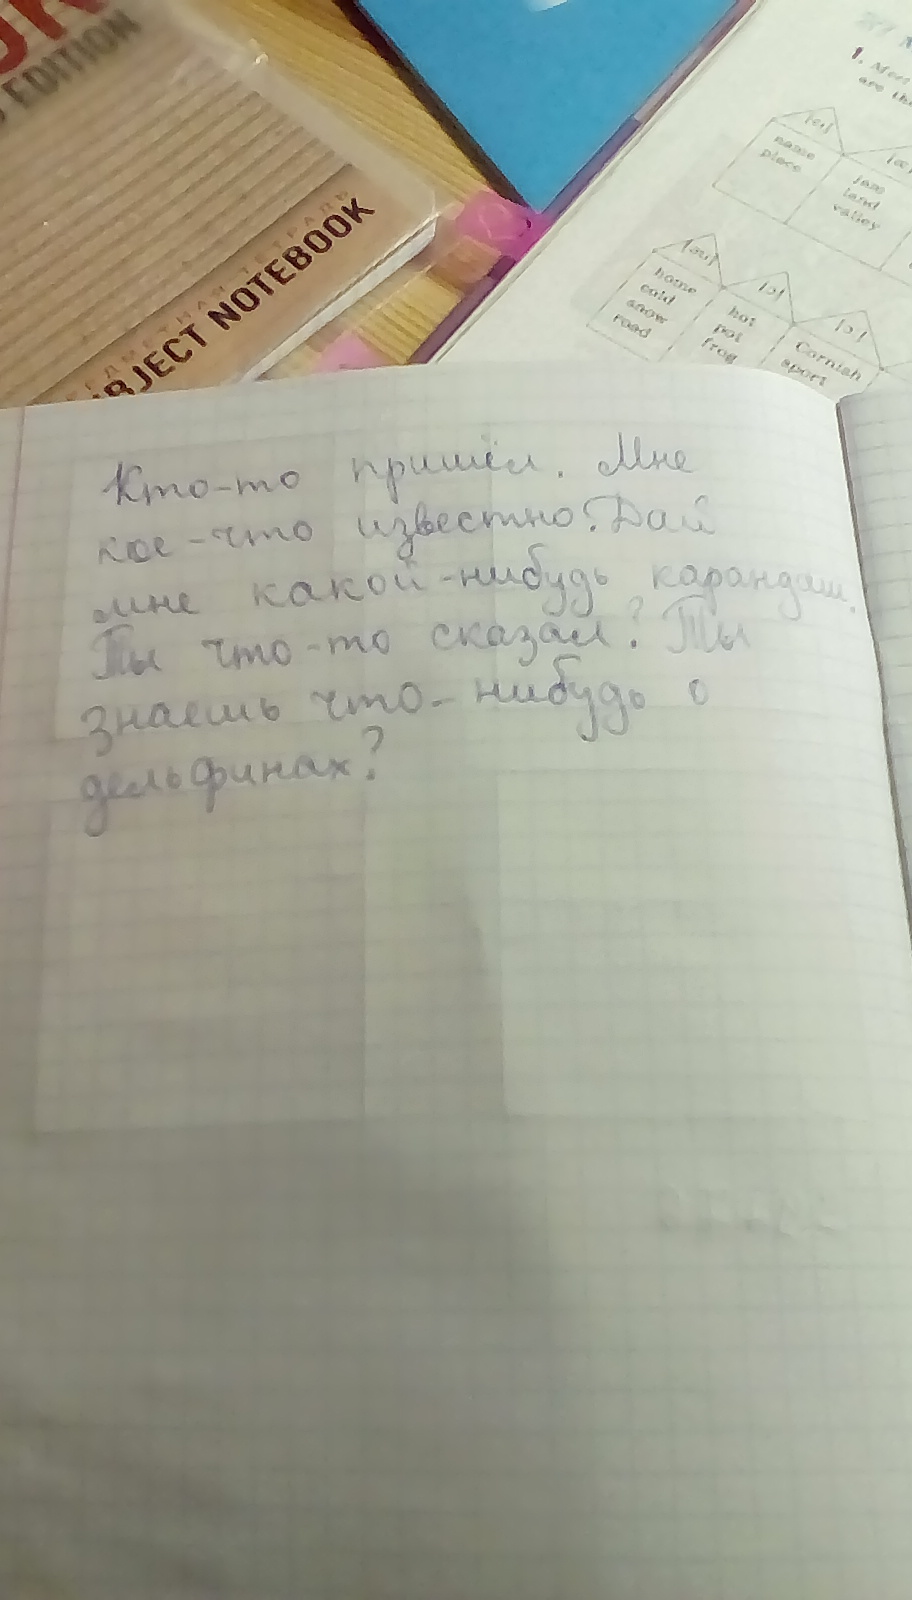 EDITION
ПРЕДМЕТНАЯ ТЕТРАДЬ
BJECT NOTEBOOK
1. Meet
are the
[eɪ]
name
place
[æ]
jam
land
valley
[əʊ]
home
cold
snow
road
[ɒ]
hot
pot
frog
[ɔ:]
Cornish
sport
Кто-то пришёл. Мне
кое-что известно. Дай
мне какой-нибудь карандаш.
Ты что-то сказал? Ты
знаешь что-нибудь о
дельфинах?